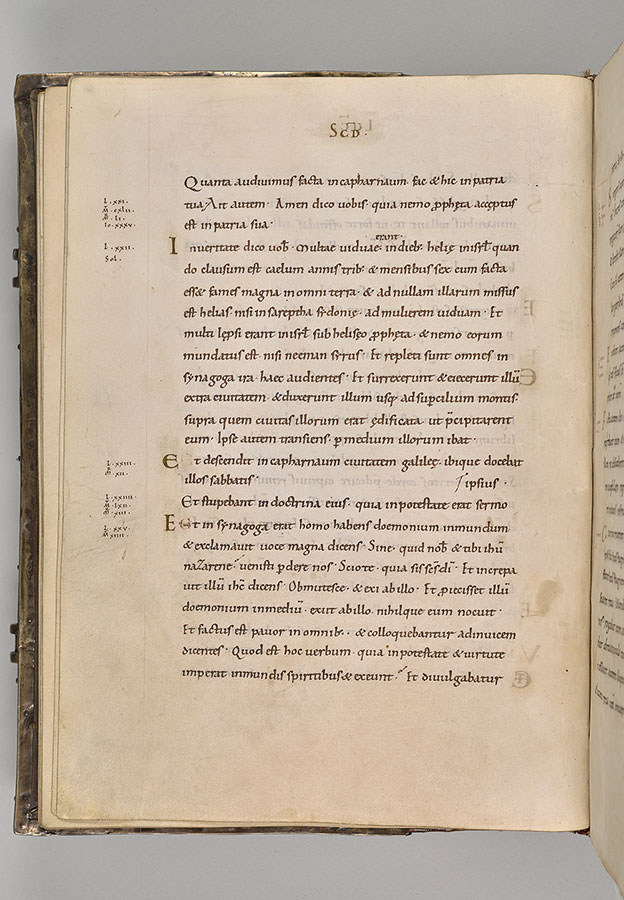 SCD.
Quanta audivimus facta in capharnaum. fac & hic in patria
L. xxi.
tua. Ait autem. Amen dico vobis. quia nemo ppheta acceptus
M. cxlii.
M. li.
Io. xxxv.
est in patria sua.
L. xxii.
Sol.
In veritate dico vob. Multae viduae erant in dieb. helię in isrl quan
do clausum est caelum annis trib. & mensibus sex cum facta
ess& fames magna in omni terra. & ad nullam illarum missus
est helias nisi in sareptha sydonię. ad mulierem viduam. Et
multi lepsi erant in isrl sub heliseo ppheta. & nemo eorum
mundatus est nisi neeman syrus. Et repleti sunt omnes in
synagoga ira. haec audientes. Et surrexerunt & eiecerunt illū
extra civitatem. & duxerunt illum usq; ad supcilium montis.
supra quem civitas illorum erat ędificata. ut pcipitarent
eum. Ipse autem transiens. p medium illorum ibat.
L. xxiii.
M. xii.
Et descendit in capharnaum civitatem galileę. ibique docebat
illos sabbatis. ipsius.
L. xxiiii.
M. lxii.
M. xiii.
Et stupebant in doctrina eius. quia in potestate erat sermo
L. xxv.
M. xiiii.
Et in synagoga erat homo habens doemonium inmundum
& exclamavit voce magna dicens. Sine. quid nob & tibi ihū
naZarene. venisti pdere nos. Scio te. quia sis scs dī. Et increpa
vit illū ihc dicens. Obmutesce. & exi ab illo. Et piecisset illū
doemonium in mediū. exiit ab illo. nihilque eum nocuit.
Et factus est pavor in omnib.. & colloquebantur ad invicem
dicentes. Quod est hoc verbum. quia in potestate & virtute
imperat inmundis spiritibus & exeunt. Et divulgabatur